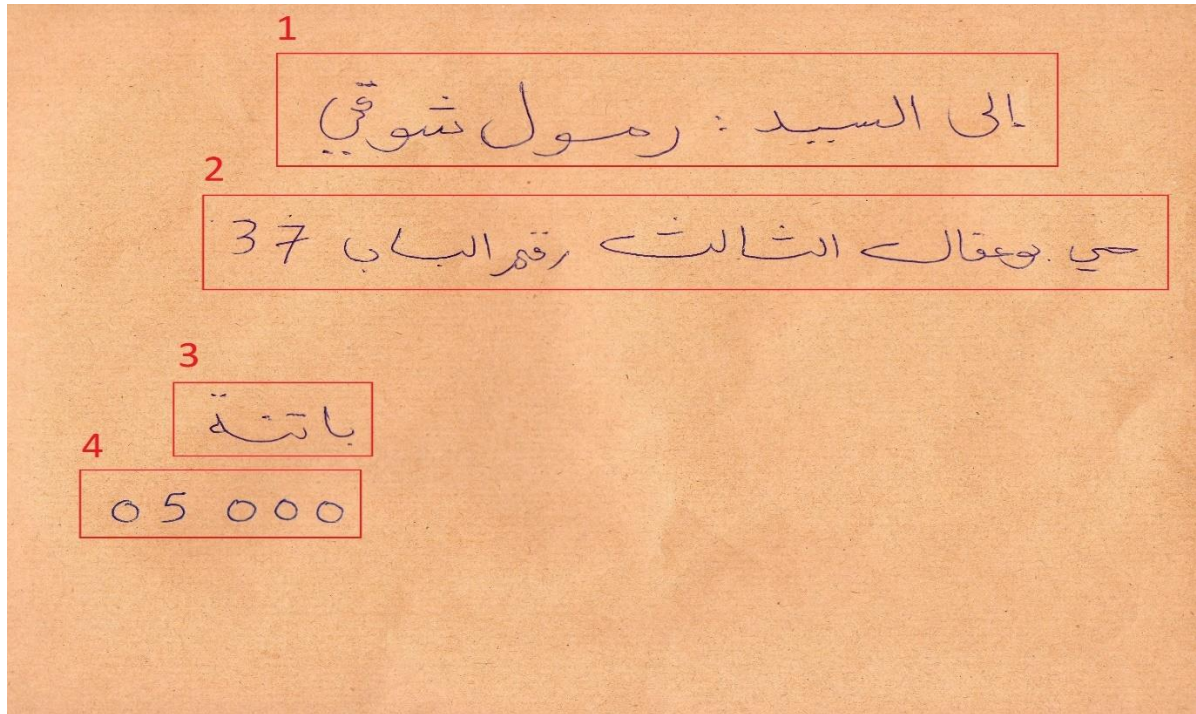 1
إلى السيد : رمول شوقي
2
حي بوعقال الثالث رقم الباب 37
3
باتنة
4
05 000